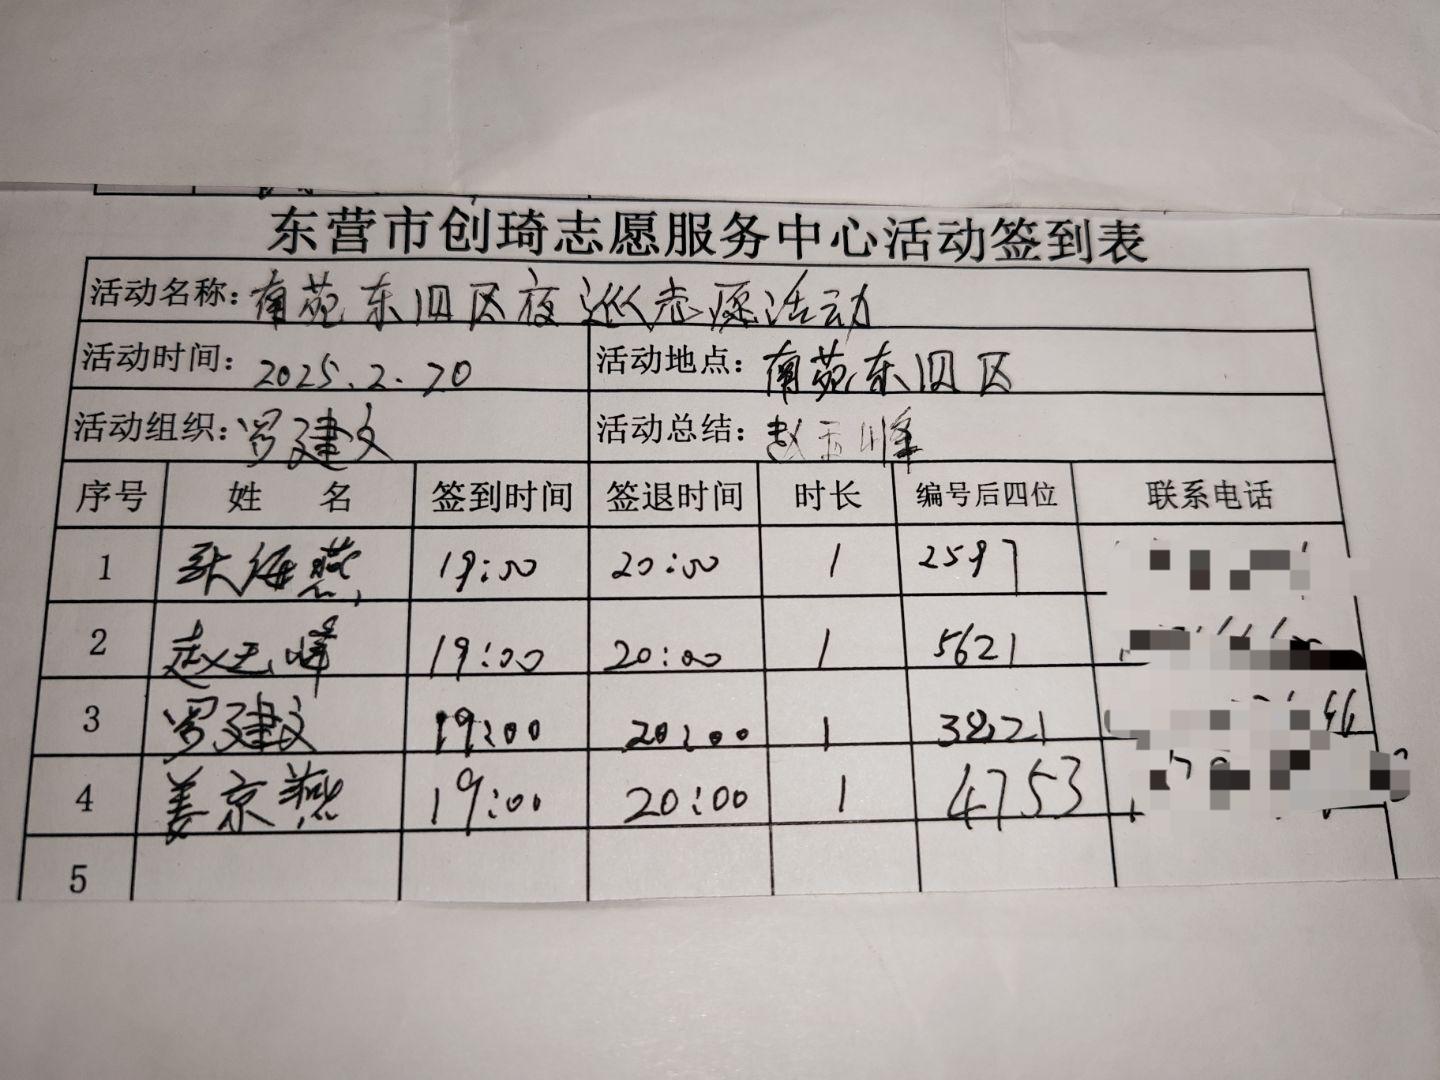 东营市创琦志愿服务中心活动签到表
活动名称：南苑东四区夜巡志愿活动
活动时间：2025.2.20 活动地点：南苑东四区
活动组织：罗建文 活动总结：赵玉峰
序号 姓名 签到时间 签退时间 时长 编号后四位 联系电话
1 张海燕 19:00 20:00 1 2597
2 赵玉峰 19:00 20:00 1 5621
3 罗建文 19:00 20:00 1 3821
4 姜京燕 19:00 20:00 1 4753
5